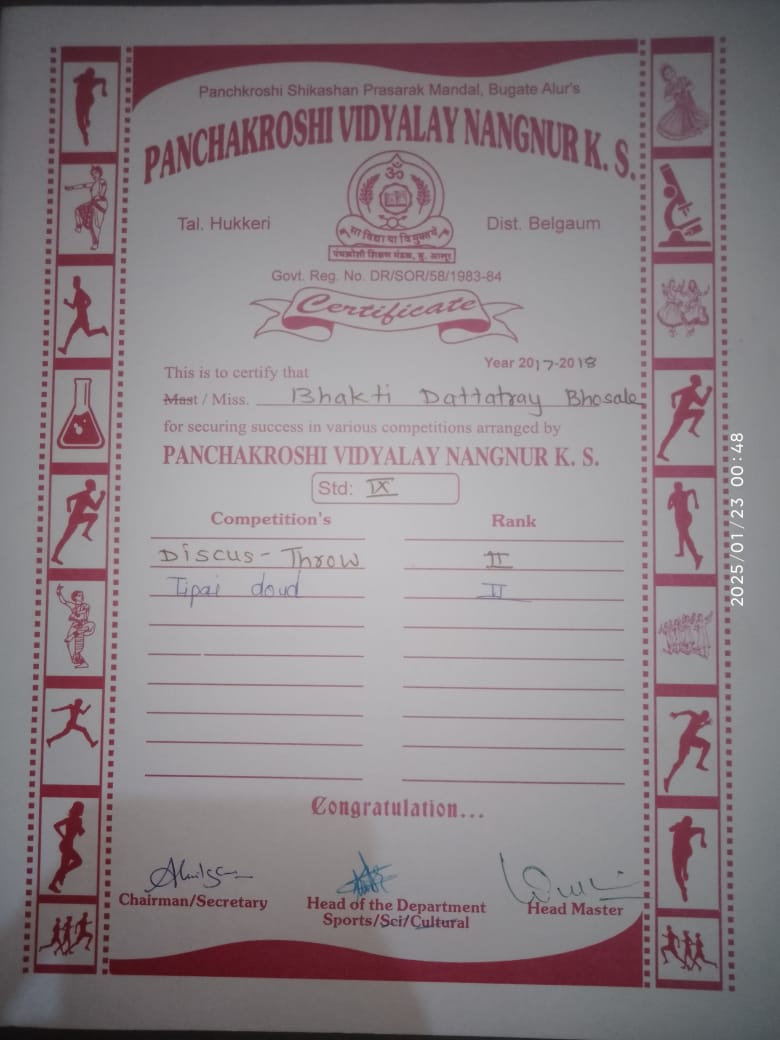 Panchkroshi Shikashan Prasarak Mandal, Bugate Alur's
PANCHAKROSHI VIDYALAY NANGNUR K. S.
ॐ
सा विद्या या विमुक्तये
पंचक्रोशी शिक्षण मंडळ, बु. आलूर
Tal. Hukkeri
Dist. Belgaum
Govt. Reg. No. DR/SOR/58/1983-84
Certificate
Year 2017-2018
This is to certify that
Mast / Miss. Bhakti Dattatray Bhosale
for securing success in various competitions arranged by
PANCHAKROSHI VIDYALAY NANGNUR K. S.
Std: IX
Competition's Rank
Discus - Throw II
Tipai doud II
Congratulation...
Chairman/Secretary
Head of the Department
Sports/Sci/Cultural
Head Master
2025/01/23 00:48